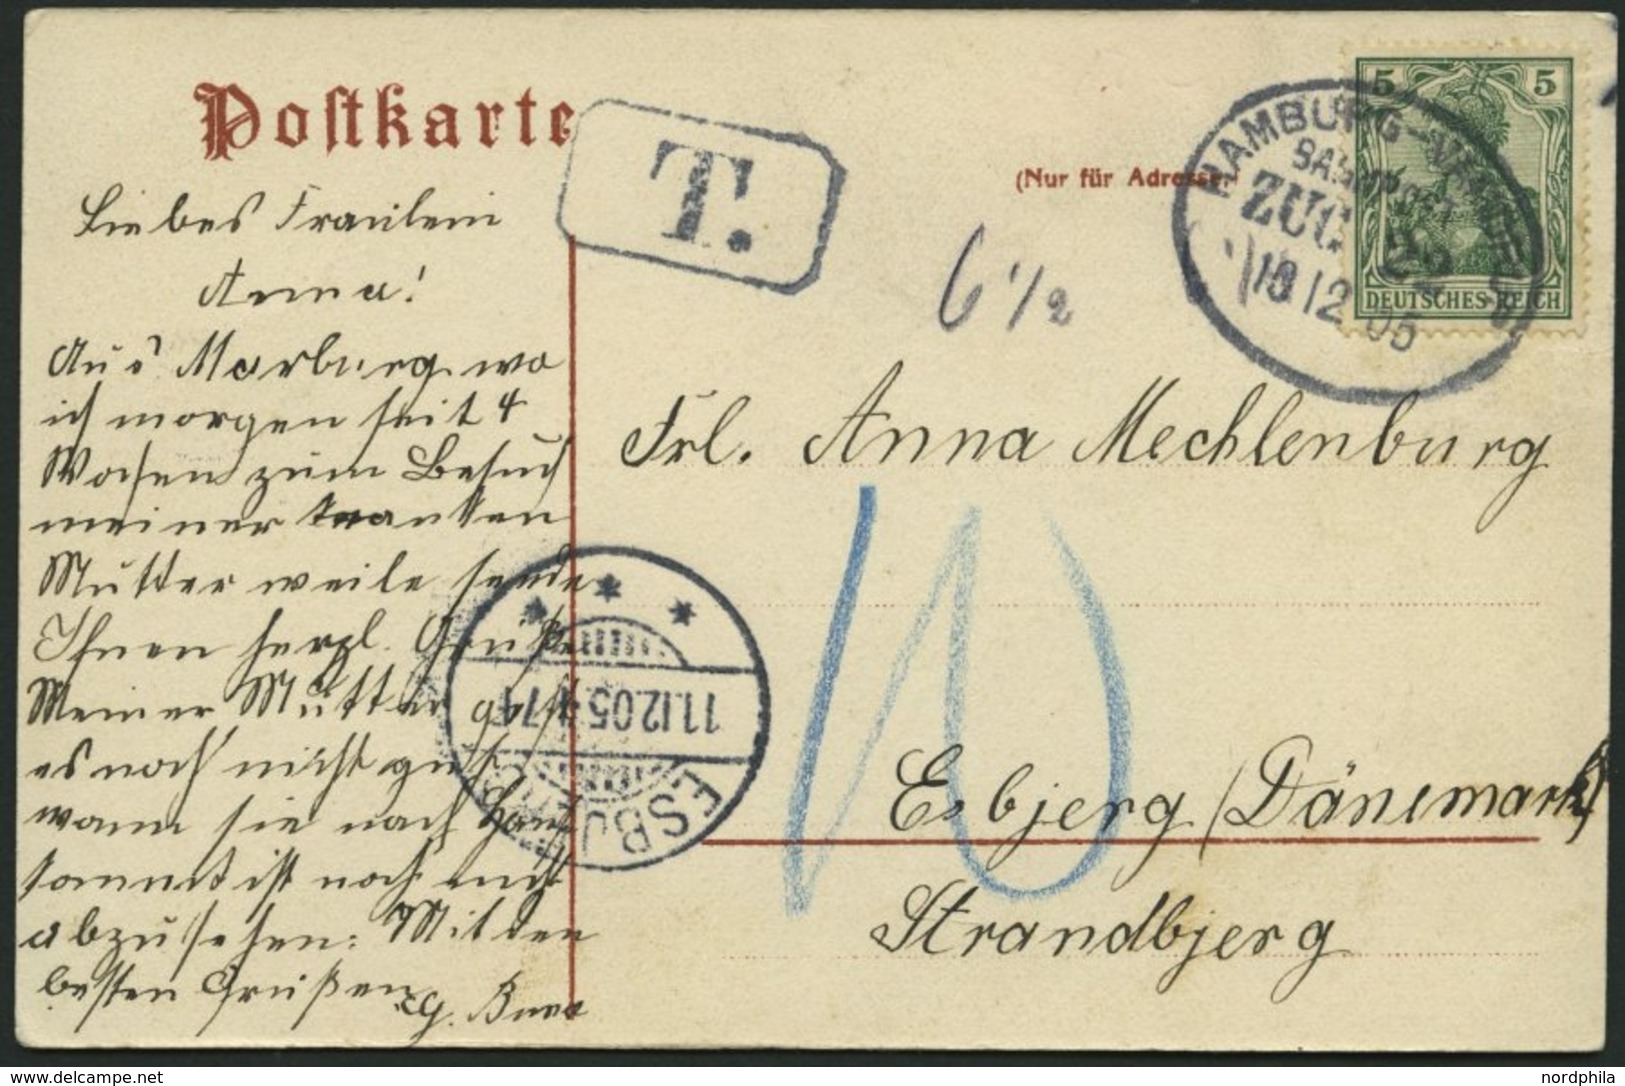 Postkarte
T.
(Nur für Adresse.)
5 5
DEUTSCHES REICH
HAMBURG-VAMDRUP
BAHNPOST
ZUG
10 12 05
6 1/2
Liebes Fraulein
Anna!
Aus Marburg wo
ich morgen seit 4
Wochen zum Besuch
meiner kranken
Mutter weile sende
Ihnen herzl. Grüße.
Meiner Mutter geht
es noch nicht gut
wann sie nach Haus
kommt ist noch nicht
abzusehen: Mit den
besten Grüßen
Frl. Anna Mechlenburg
10
Esbjerg (Dänemark)
Strandbjerg
ESBJERG
11.12.05
delcampe.net
nordphila